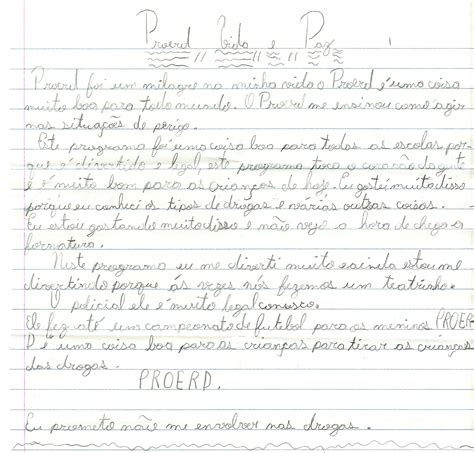 Proerd Vida e Paz
Proerd foi um milagre na minha vida o Proerd é uma coisa
muito boa para todo mundo. O Proerd me ensinou como agir
nas situações de perigo.
Este programa foi uma coisa boa para todas as escolas por-
que é divertido e legal, este programa toca o coração da gente
e é muito bom para as crianças de hoje. Eu gostei muito disso
porque eu conheci os tipos de drogas e várias outras coisas.
Eu estou gostando muito disso e não vejo a hora de chegar a
formatura.
Neste programa eu me diverti muito e ainda estou me
divertindo porque ás vezes nós fizemos um teatrinho.
O policial ele é muito legal conosco.
Ele fez até um campeonato de futebol para os meninos PROER-
D é uma coisa boa para as crianças para tirar as crianças
das drogas.
PROERD.
Eu prometo não me envolver nas drogas.